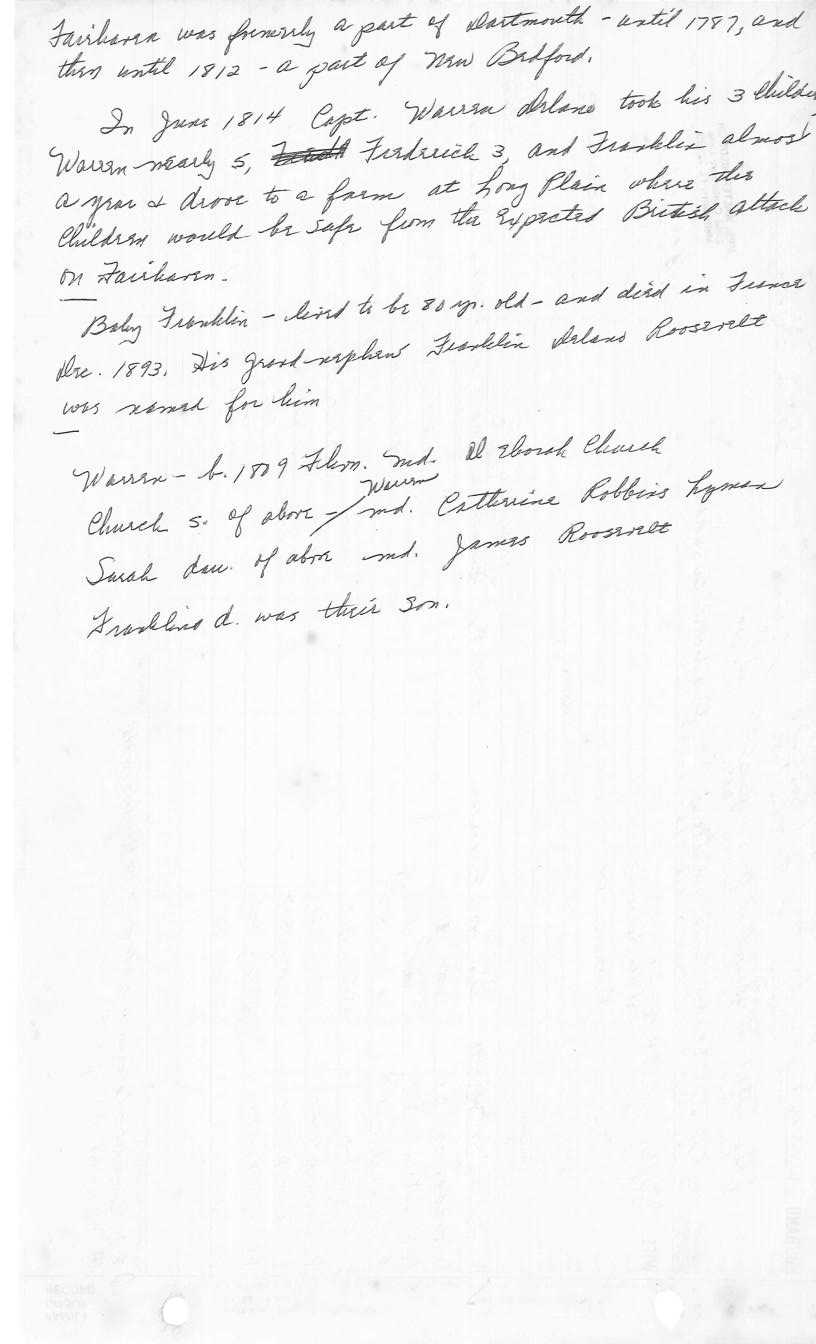 Fairhaven was formerly a part of Dartmouth - until 1787, and
then until 1812 - a part of New Bedford.
In June 1814 Capt. Warren Delano took his 3 Children
Warren nearly 5, Frederick 3, and Franklin almost
a year & drove to a farm at Long Plain where the
Children would be safe from the expected British attack
on Fairhaven.
Baby Franklin - lived to be 80 yr. old - and died in France
Dec. 1893. His grand-nephew Franklin Delano Roosevelt
was named for him
Warren - b. 1809 Fhvn. md. Deborah Church
Warren
Church s. of above - / md. Catherine Robbins Lyman
Sarah dau. of above md. James Roosevelt
Franklin d. was their son.